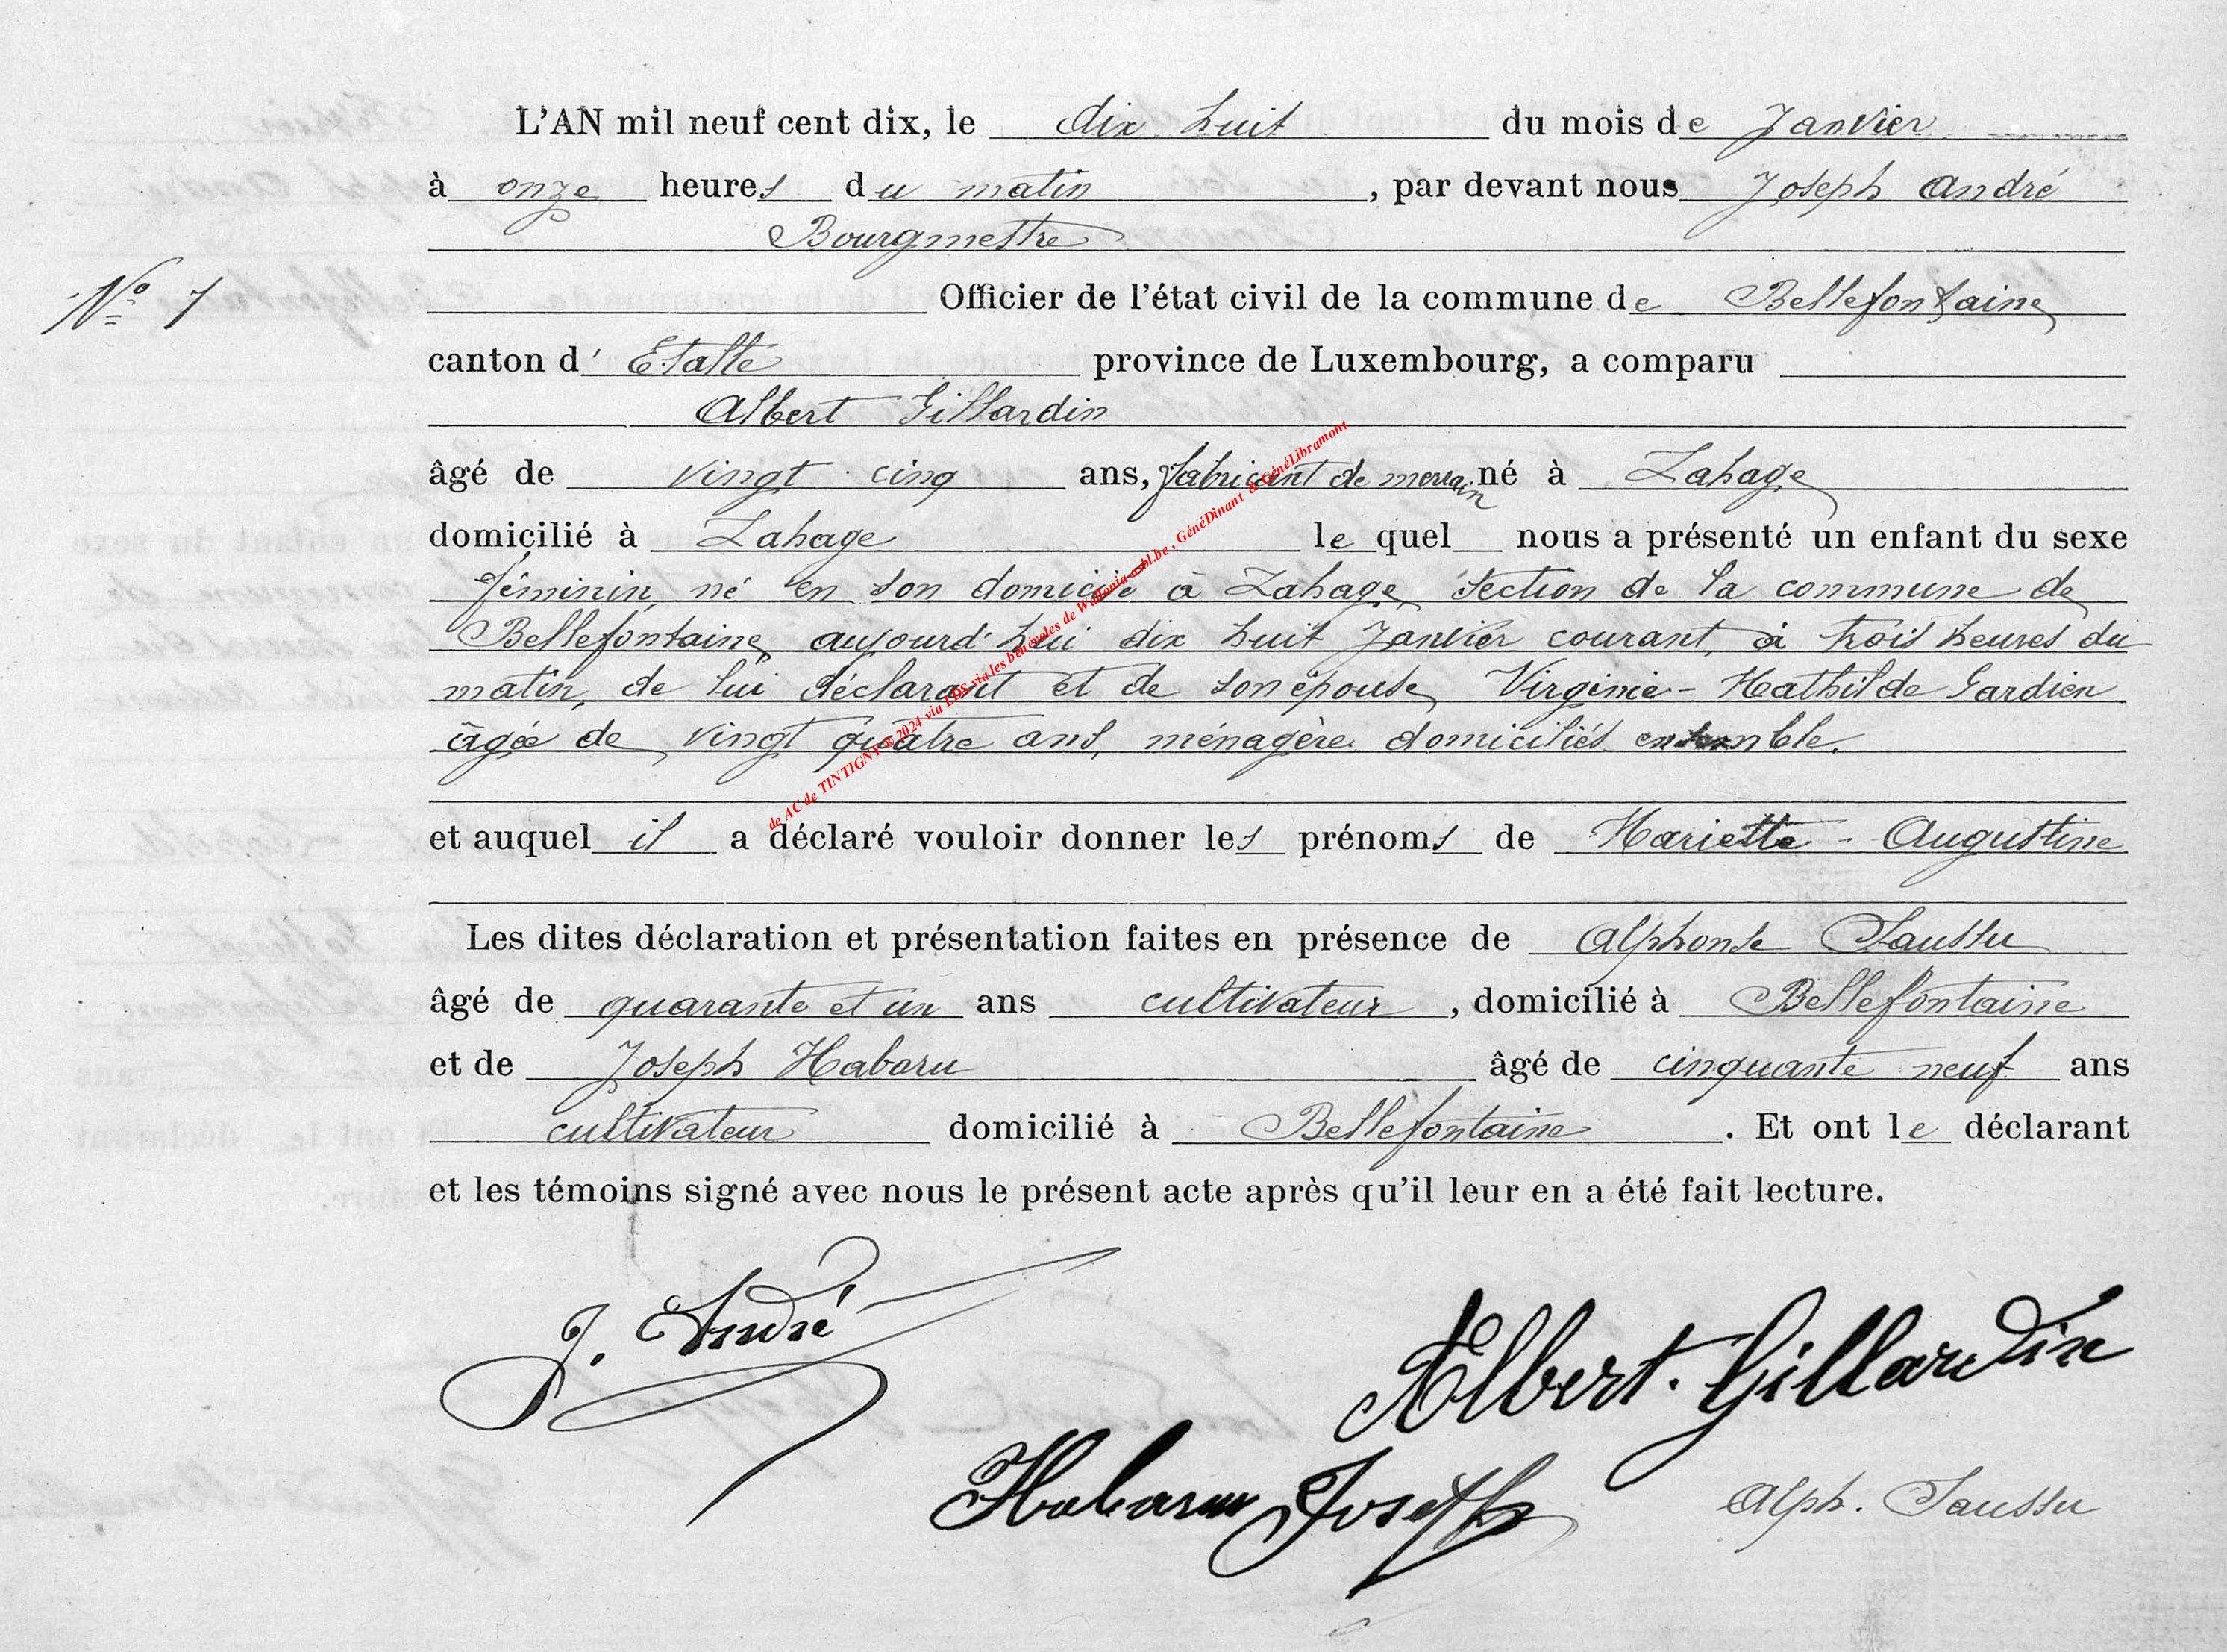 L'AN mil neuf cent dix, le dix huit du mois de Janvier
à onze heures du matin, par devant nous Joseph André
Bourgmestre
N° 7
Officier de l'état civil de la commune de Bellefontaine
canton d'Etalle province de Luxembourg, a comparu
Albert Gillardin
âgé de vingt cinq ans, fabricant de merrain né à Lahage
domicilié à Lahage le quel nous a présenté un enfant du sexe
féminin, né en son domicile à Lahage section de la commune de
Bellefontaine, aujourd'hui dix huit Janvier courant, à trois heures du
matin, de lui déclarant et de son épouse, Virginie-Mathilde Gardien
âgée de vingt quatre ans, ménagère domiciliés ensemble.
et auquel il a déclaré vouloir donner les prénoms de Mariette - Augustine
Les dites déclaration et présentation faites en présence de Alphonse Saussu
âgé de quarante et un ans cultivateur, domicilié à Bellefontaine
et de Joseph Habaru âgé de cinquante neuf ans
cultivateur domicilié à Bellefontaine. Et ont le déclarant
et les témoins signé avec nous le présent acte après qu'il leur en a été fait lecture.
J. André
Albert. Gillardin
Habaru Joseph
Alph. Saussu
de AC de TINTIGNY © 2024 via LDS via les bénévoles de Wallonia-asbl.be, GénéDinant & GénéLibramont